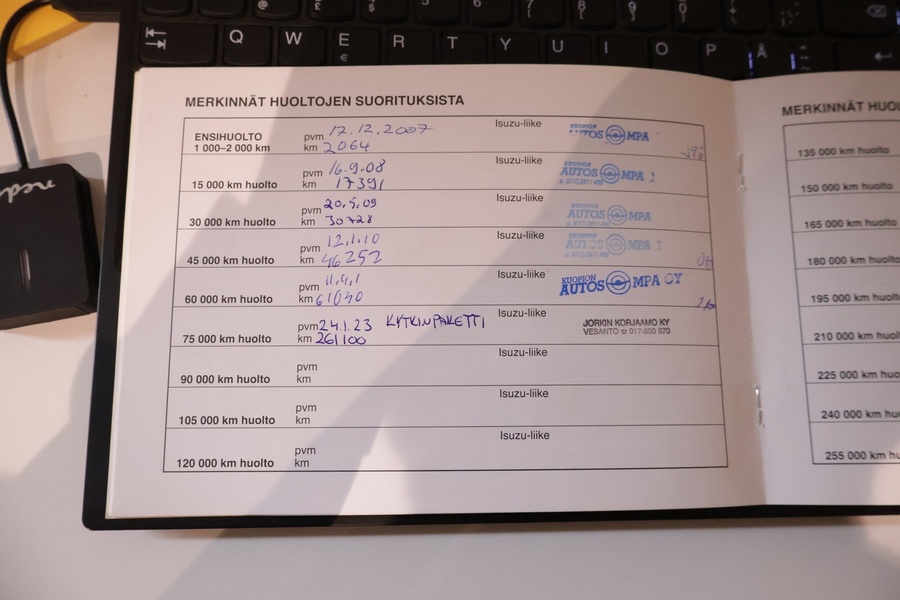 Q W E R T Y U I O P Å
€
nedis
MERKINNÄT HUOLTOJEN SUORITUKSISTA
ENSIHUOLTO
1 000–2 000 km
pvm 17.12.2007
km 2064
Isuzu-liike
KUOPION
AUTOS MPA
15 000 km huolto
pvm 16.9.08
km 17391
Isuzu-liike
KUOPION
AUTOS MPA
30 000 km huolto
pvm 20.5.09
km 30728
Isuzu-liike
KUOPION
AUTOS MPA
45 000 km huolto
pvm 12.1.10
km 46252
Isuzu-liike
KUOPION
AUTOS MPA
60 000 km huolto
pvm 11.4.1
km 61040
Isuzu-liike
KUOPION
AUTOS MPA OY
75 000 km huolto
pvm 24.1.23 KYTKINPAKETTI
km 261100
Isuzu-liike
JORKIN KORJAAMO KY
VESANTO ☎ 017-650 670
90 000 km huolto
pvm
km
Isuzu-liike
105 000 km huolto
pvm
km
Isuzu-liike
120 000 km huolto
pvm
km
Isuzu-liike
MERKINNÄT HUOL
135 000 km huolto
150 000 km huolto
165 000 km huolto
180 000 km huolto
195 000 km huolto
210 000 km huolto
225 000 km huo
240 000 km huo
255 000 km hu